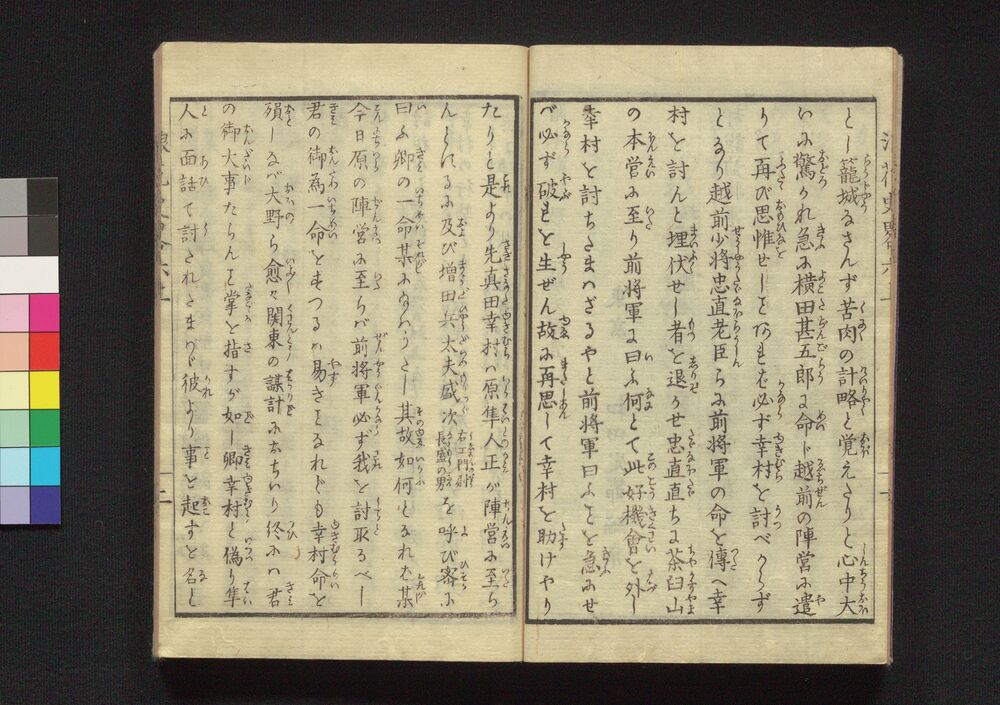 とし籠城なさんず苦肉の計略と覚えたりと心中大
いに驚かれ急に横田甚五郎に命じ越前の陣営に遣
りて再び思惟せしを
とあり越前少将忠直老臣らに前将軍の命を傳へ幸
村を討んと埋伏せし者を退かせ忠直直ちに茶臼山
の本営に至り前将軍に曰ふ何とて此好機會を外し
幸村を討ちたまはざるやと前将軍曰ふ を急にせ
べ必ず破れを生ぜん故に再思して幸村を助けやり
たりと是より先真田幸村ハ原隼人正が陣営に至ら
んとするに及び増田兵太夫盛次右エ門尉長盛の男を呼び密に
曰ふ卿の一命某に し其故如何となれば某
今日原の陣営に至らバ前将軍必ず我を討取るべし
君の御為一命をすつるハ易きことなれども幸村命を
殞しなバ大野ら愈々関東の謀計におちいり終にハ君
の御大事たらんこと掌を指すが如し卿幸村と偽り隼
人に面話て討たれたまはゞ彼より事を起すと名し